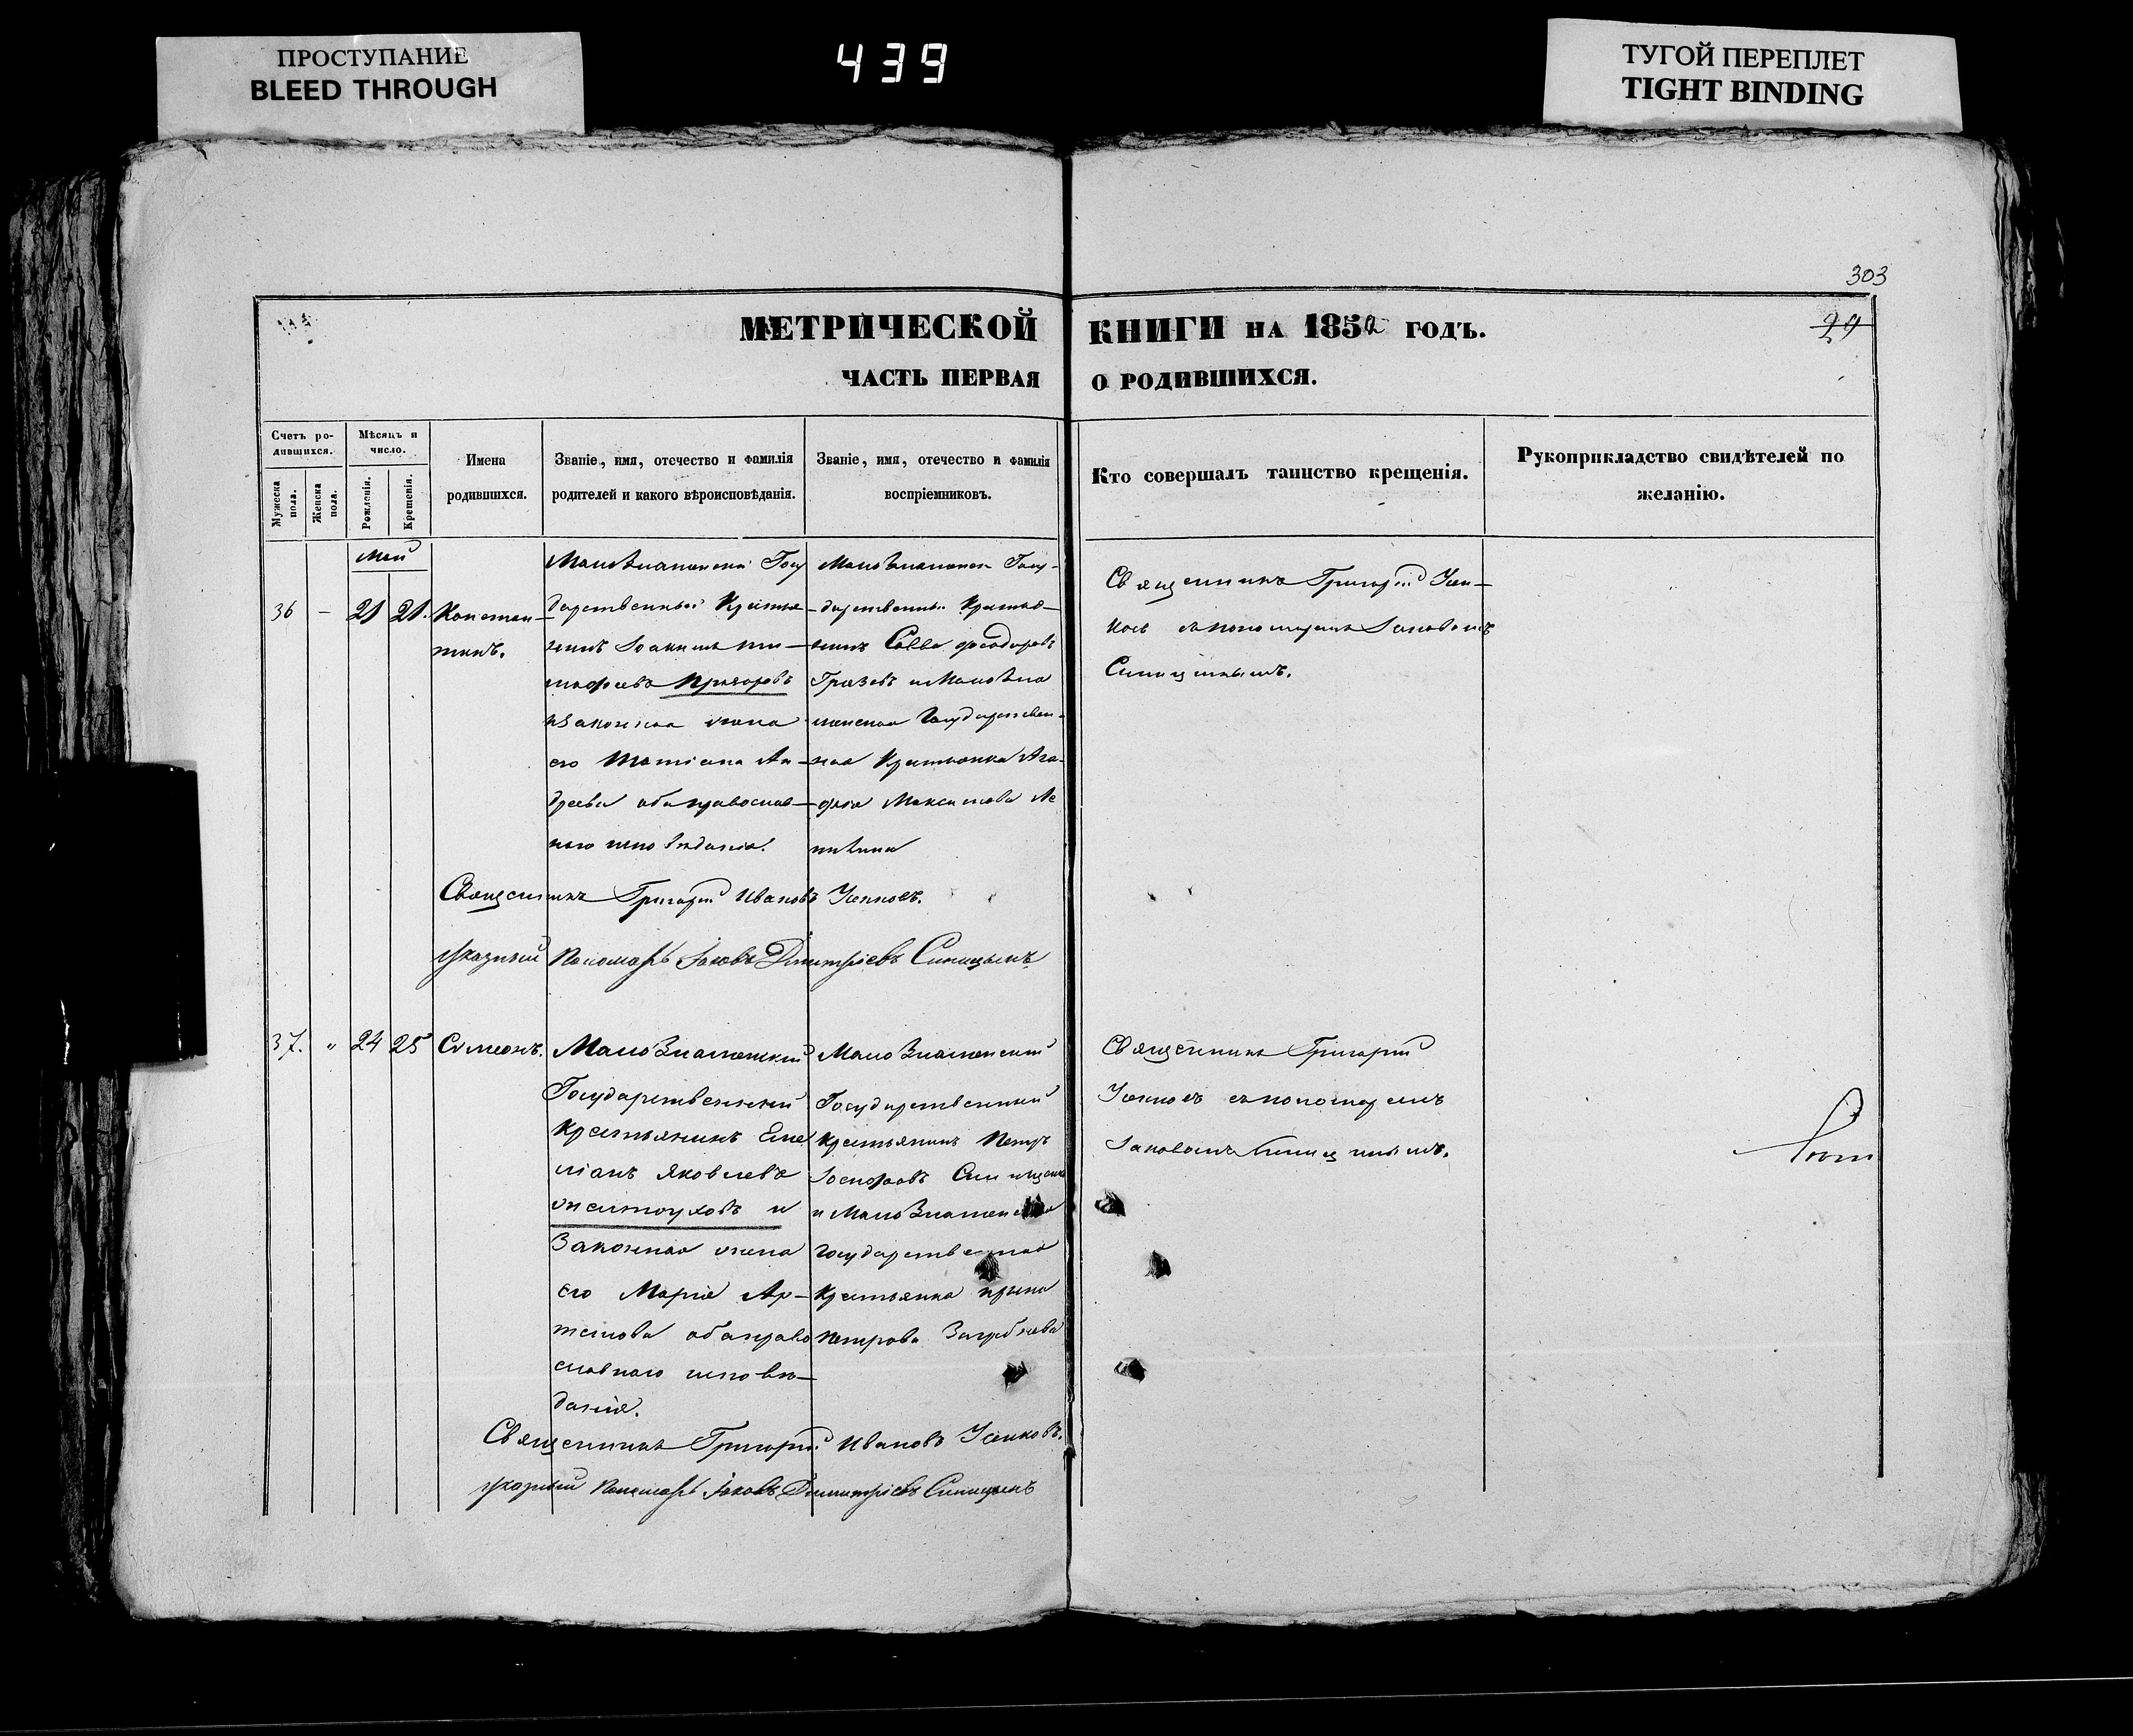 ПРОСТУПАНИЕ
BLEED THROUGH
439
ТУГОЙ ПЕРЕПЛЕТ
TIGHT BINDING
303
МЕТРИЧЕСКОЙ КНИГИ НА 1852 ГОДЪ.
29
ЧАСТЬ ПЕРВАЯ О РОДИВШИХСЯ.
Счетъ ро-
дившихся.
Мужеска пола.
Женска пола.
Мѣсяцъ и
число.
Рожденія.
Крещенія.
Имена
родившихся.
Званіе, имя, отечество и фамилія
родителей и какого вѣроисповѣданія.
Званіе, имя, отечество и фамилія
воспріемниковъ.
Кто совершалъ таинство крещенія.
Рукоприкладство свидѣтелей по
желанію.
Май
36 – 21 21.
Констан-
тинъ.
Малознаменскій Госу
дарственный Крестья-
нинъ Іоакимъ Ти-
мофеевъ
и законная жена
его Татіана Ан-
дреева оба православ-
наго исповѣданія.
Малознаменск Госу-
дарственный Крестья-
нинъ Савва Феодоровъ
и Малозна
менская Государствен-
ная Крестьянка Ага-
фія Максимова
Священникъ Григорій Усен-
ковъ съ пономаремъ Іаковомъ
Синицынымъ.
Священникъ Григорій Ивановъ Усенковъ.
указный Пономарь Іаковъ Димитріевъ Синицынъ
37. " 24 25
Симеонъ.
Малознаменскій
Государственный
Крестьянинъ Еме
ліанъ Яковлевъ
и
Законная жена
его Марія Ар-
темова оба право
славнаго исповѣ-
данія.
Малознаменскій
Государственный
Крестьянинъ Петръ
Іосифовъ
и Малознаменская
Государственная
Крестьянка Ирина
Петрова
Священникъ Григорій
Усенковъ съ пономаремъ
Іаковомъ Синицынымъ.
Священникъ Григорій Ивановъ Усенковъ.
указный Пономарь Іаковъ Димитріевъ Синицынъ